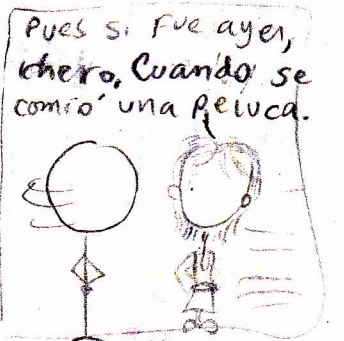 Pues si fue ayer,
chero, Cuando se
comió una Peluca.